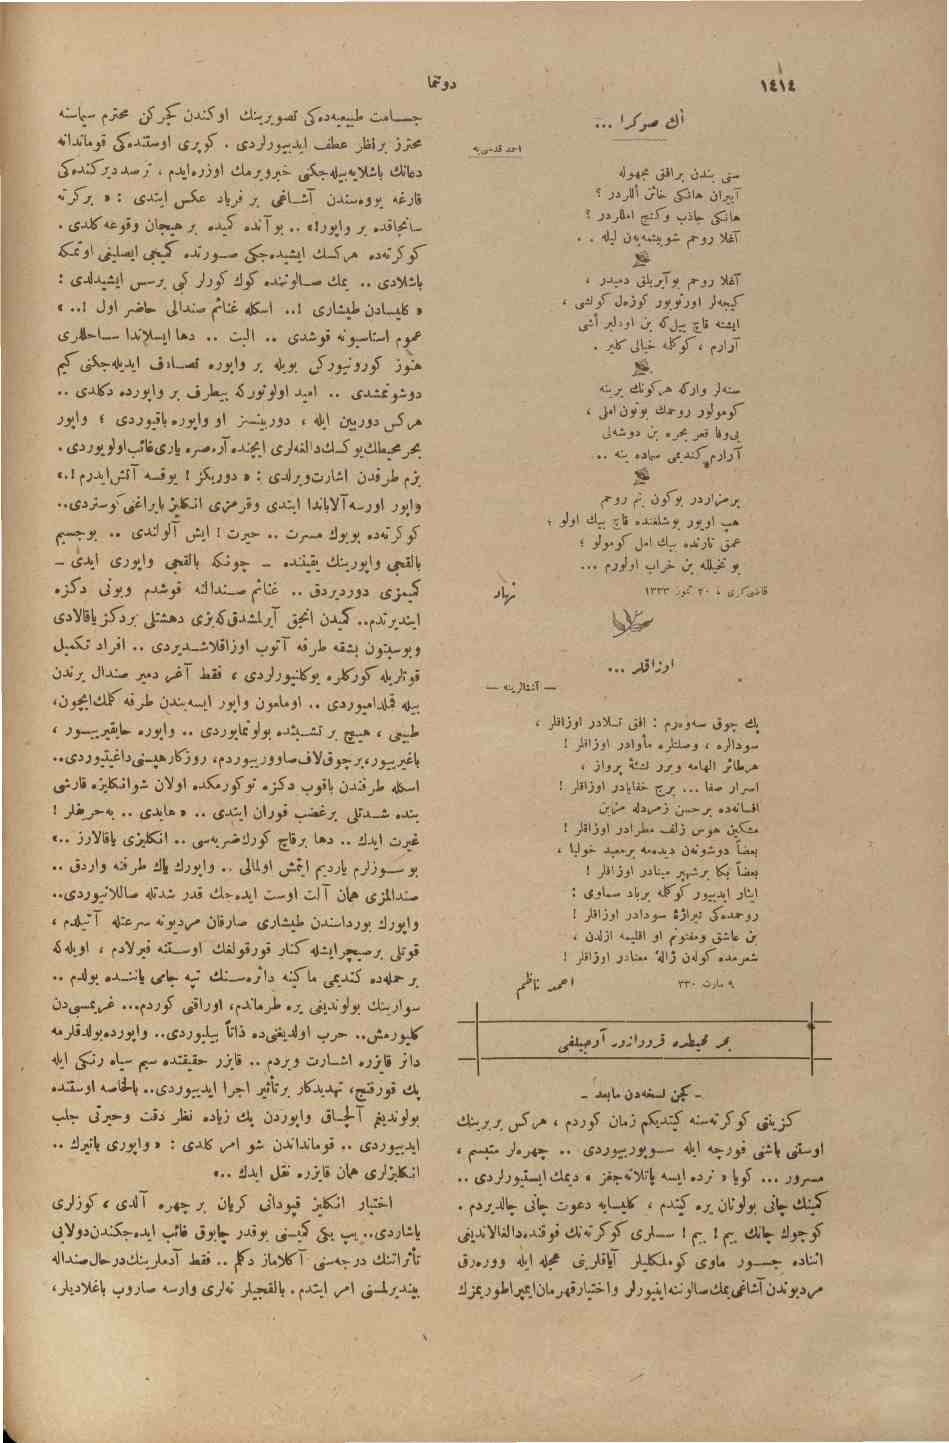 ١٤١٤
دوننما
أك صوكرا ...
احمد قدسی‌یه
سنی بندن براقتی مجهوله
آییران هانكی خائن أللردر ؟
هانكی جاذب وكنج امللردر ؟
آغلا روحم شویتمه‌یه‌ن لیله . .
آغلا روحم بوآیریلق دمیدر ،
كیجه‌لر اورتویور كوزه‌ل كونشی ،
ایشته قاچ ییل‌كه بن اودلبر أشی
آرارم ، كوكلمه خیالی كلیر .
سنه‌لر واركه هركونك برینه
كومولور روحمك بوتون املی ،
بی‌وفا قعر بحره بن دوشه‌لی
آرارم كندیمی سماده ینه ..
برمزاردر بوكون بنم روحم
هپ اویور بوشلغنده قاچ بیك اولو ؛
عمق تارنده بیك امل كومولو ؛
بو تخیلله بن خراب اولورم ...
قاضی‌كوی ، ٢٠ تموز ١٣٣٣
نهاد
اوزاقلر ...
— آتشلرینه —
پك چوق سه‌وه‌رم : افق تسلادر اوزاقلر ،
سودالره ، وصلتلره مأوادر اوزاقلر !
هرطائر الهامه ویرر نشئهٔ پرواز ،
اسرار صفا ... برج خفایادر اوزاقلر !
افسانه‌ده برحسن زمردله مزین
مشكین هوس زلف مطرادر اوزاقلر !
بعضاً دوشونه‌ن دیده‌مه برمعبد خولیا ،
بعضاً بكا برشهپر مینادر اوزاقلر !
ایثار ایدییور كوكلمه برباد سماوی :
روحمده‌كی تیراژهٔ سودادر اوزاقلر !
بن عاشق ومفتونم او اقلیمه ازلدن ،
شعرمده كوله‌ن ژالهٔ معنادر اوزاقلر !
٩ مارت ٣٣٠
احمد ناظم
بحر محیطده قروازور آوجیلغی
- كچن نسخه‌دن مابعد -
كزینتی كوكرته‌سنه كیتدیكم زمان كوردم ، هركس بربرینك
اوستنی باشنی فورچه ایله سوپوریوردی .. چهره‌لر متبسم ،
مسرور ... كویا « نرده ایسه پاتلاته‌جغز » دیمك ایستیورلردی ..
كمینك چانی بولونان یره كیتدم ، كلیسایه دعوت چانی چالدیردم .
كوچوك چانك بیم ! بیم ! سسلری كوكرته‌نك فوقنده‌دالغالاندیغی
اثناده جسور ماوی كوملكلیلر آیاقلرینی عجله ایله ووره‌رق
مردیوندن‌آشاغی یمك‌صالوننه‌اینیورلر واختیارقهرمان‌ایمپراطوریمزك
جسامت طبیعیه‌ده‌كی تصویرینك اوكندن كچركن محترم سیماسنه
محترز برنظر عطف ایدییورلردی . كوپری اوستنده‌كی قوماندانه
دعانك باشلایه‌بیله‌جكنی خبرویرمك اوزره‌ایدم ، ترصد دیركنده‌كی
قارغه یووه‌سندن آشاغی بر فریاد عكس ایتدی : « بركرته
سانجاقده بر واپور!» .. بو آنده كمیده بر هیجان وقوعه‌كلدی .
كوكرته‌ده هركسك ایشیده‌جكی صورتده كمیجی ایصلیغی اوتمكه
باشلادی .. یمك صالوننده كوك كورلر كبی برسس ایشیدلدی :
« كلیسادن طیشاری !.. اسكله غنائم صندالی حاضر اول !.. »
عموم استاسیونه قوشدی .. البت .. دها ایسلاندا ساحللری
هنوز كورونیوركن بویله بر واپوره تصادف ایدیله‌جكنی كیم
دوشونمشدی .. امید اولونوركه بیطرف بر واپورده دكلدی ..
هركس دوربین ایله ، دوربینسز او واپوره باقیوردی ؛ واپور
بحر محیطك‌یوكسك‌دالغه‌لری ایچنده آره‌صره یاری‌غائب‌اولویوردی .
بزم طرفدن اشارت‌ویرلدی : « دوریكز ! یوقسه آتش‌ایدرم !.»
واپور اورسه‌آلاباندا ایتدی وقرمزی انكلیز بایراغنی كوستردی..
كوكرته‌ده بویوك مسرت .. حیرت ! ایش آلولندی .. بوجسیم
بالقجی واپورینك یقیننده - چونكه بالقجی واپوری ایدی -
كمیمزی دوردیردق .. غنائم صندالنه قوشدم وبونی دكزه
ایندیرتدم.. كمیدن انجق آیرلمشدق‌كه‌بزی دهشتلی بردكزیاقالادی
وبوسبتون بشقه طرفه آتوب اوزاقلاشدیردی .. افراد تكمیل
قوتلریله كوركلره یوكلنیورلردی ، فقط آغر دمیر صندال یرندن
بیله قملدامیوردی .. اومامون واپور ایسه‌بندن طرفه كلمك‌ایچون،
طبیعی ، هیچ بر تشبثده بولونمایوردی .. واپوره حایقیریور ،
باغیرییور،برچوق‌لاف‌صاوورییوردم، روزكارهپسنی‌داغیتیوردی..
اسكله طرفندن باقوب دكزه توكورمكده اولان شوانكلیزه قارشی
بنده شدتلی برغضب فوران ایتدی .. « هایدی .. به‌حریفلر !
غیرت ایدك .. دها برقاچ كورك‌ضربه‌سی .. انكلیزی یاقالارز ..»
بو سوزلرم یاردیم ایتمش اولمالی .. واپورك پك طرفنه واردق ..
صندالمزی همان آلت اوست ایده‌جك قدر شدتله صاللانیوردی..
واپورك بورداسندن طیشاری صارقان مردیونه سرعتله آتیلدم ،
قوتلی برصیچرایشله كنار قورقولغك اوستنه فیرلادم ، اویله‌كه
بر حمله‌ده كندیمی ماكینه دائره‌سنك تپه جامی یاننده بولدم ..
سواربنك بولوندیغی یره طرماندم، اوراقنی كوردم... غریمسی‌دن
كلیورمش.. حرب اولدیغنی‌ده ذاتاً بیلیوردی.. واپورده‌بولدقلرمه
دائر قایزره اشارت ویردم .. قایزر حقیقتده سیم سیاه رنكی ایله
پك قورقنج، تهدیدكار برتأثیر اجرا ایدییوردی.. بالخاصه اوستنده
بولوندیغم آلچاق واپوردن پك زیاده نظر دقت وحیرتی جلب
ایدییوردی .. قومانداندن شو امر كلدی : « واپوری باتیرك ..
انكلیزلری همان قایزره نقل ایدك ..»
اختیار انكلیز قپودانی كریان بر چهره آلدی ، كوزلری
یاشاردی.. یپ یكی كمیسنی بوقدر چابوق غائب ایده‌جكندن‌دولایی
تأثراتنك درجه‌سنی آكلاماز دكلم .. فقط آدملرینك‌درحال‌صنداله
بیندیرلمسنی امر ایتدم. بالقجیلر نه‌لری وارسه صاروب باغلادیلر،